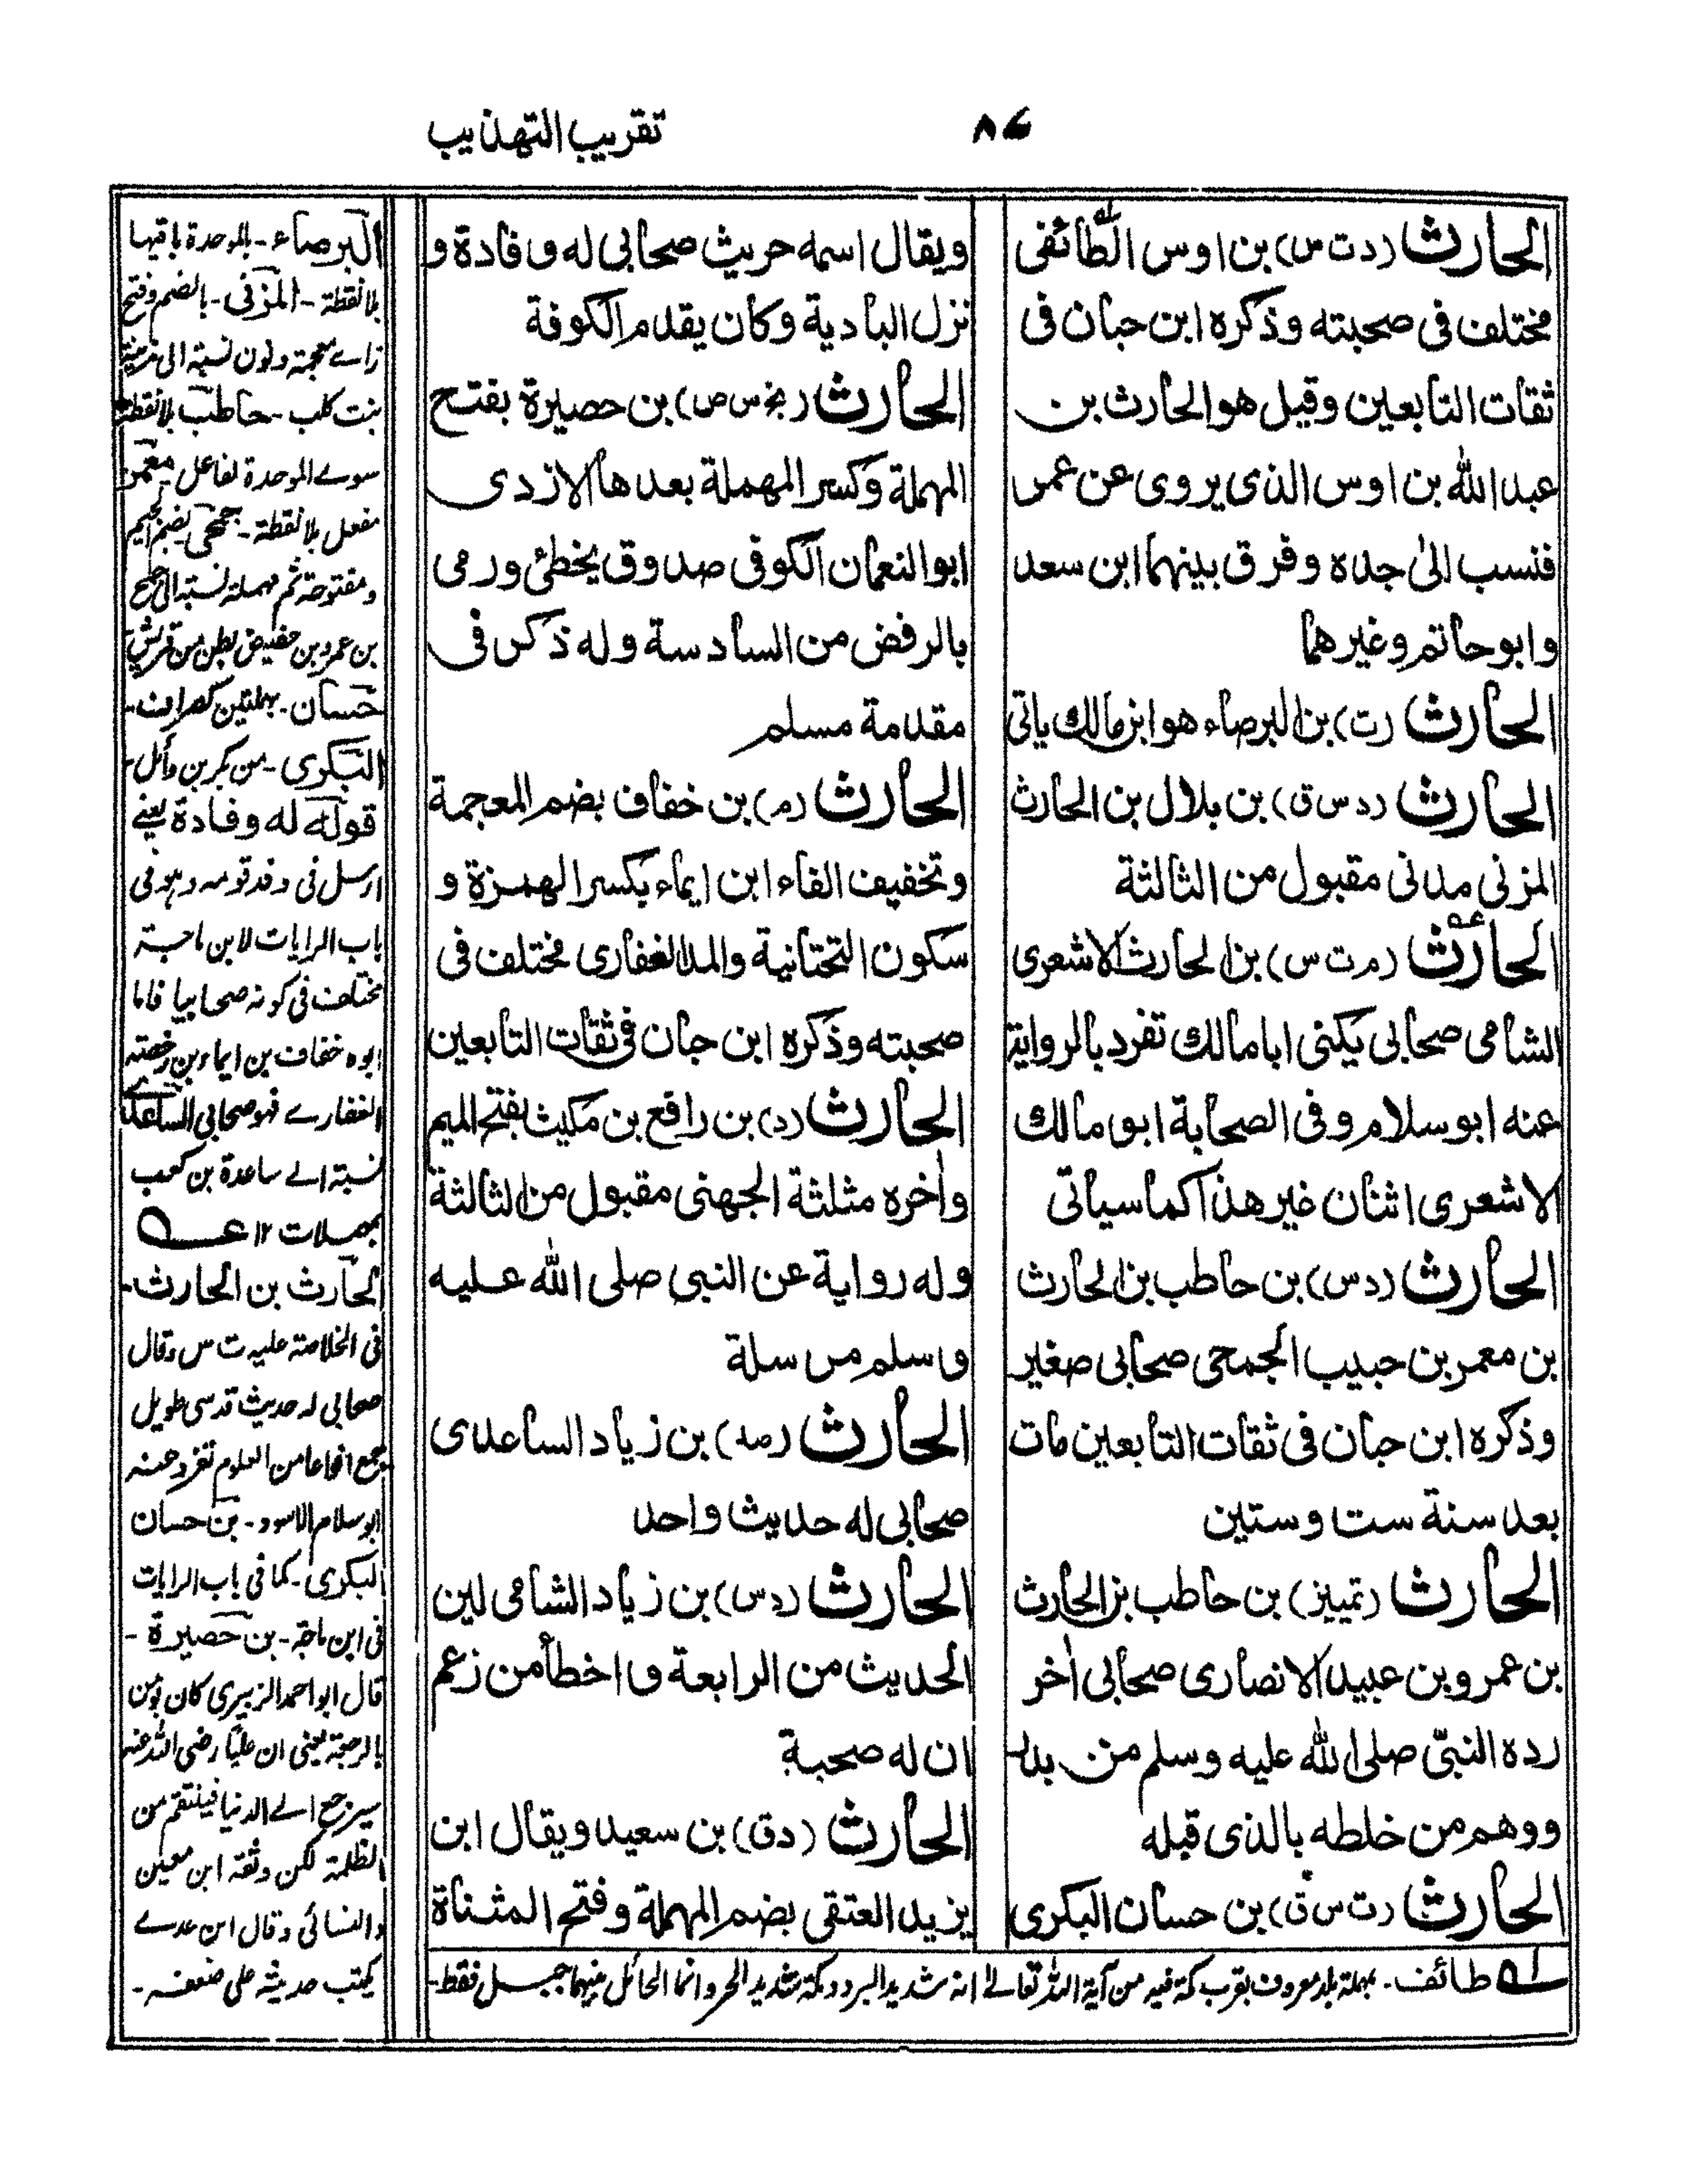 ٨٤
تقريب التهذيب
الحارث (د ت س) بن اوس الطّائفى
مختلف فى صحبته وذكره ابن حبان فى
ثقات التابعين وقيل هو الحارث بن
عبد الله بن اوس الذى يروى عن عمر
فنسب الىٰ جده وفرق بينهما ابن سعد
وابو حاتم وغيرهما
الحارث (ت) بن البرصاء هو ابن مالك ياتى
الحارث (د س ق) بن بلال بن الحارث
المزنى مدنى مقبول من الثالثة
الحارث (م ت س) بن الحارث الاشعرى
الشامى صحابى يكنى ابا مالك تفرد بالرواية
عنه ابو سلام وفى الصحابة ابو مالك
الاشعرى اثنان غير هذا كما سياتى
الحارث (د س) بن حاطب بن الحارث
بن معمر بن حبيب الجمحى صحابى صغير
وذكره ابن حبان فى ثقات التابعين مات
بعد سنة ست وستين
الحارث (تمييز) بن حاطب بن الحارث
بن عمرو بن عبيد الانصارى صحابى اٰخر
رده النبىّ صلى الله عليه وسلم من بدر
ووهم من خلطه بالذى قبله
الحارث (ت س ق) بن حسان البكرى
ويقال اسمه حريث صحابى له وفادة و
نزل البادية وكان يقدم الكوفة
الحارث (بخ س ص) بن حصيرة بفتح
المهملة وكسر المهملة بعدها الازدى
ابو النعمان الكوفى صدوق يخطئ ورمى
بالرفض من السادسة وله ذكر فى
مقدمة مسلم
الحارث (م) بن خفاف بضم المعجمة
وتخفيف الفاء ابن ايماء بكسر الهمزة و
سكون التحتانية والمد الغفارى مختلف فى
صحبته وذكره ابن حبان فى ثقات التابعين
الحارث (د) بن رافع بن مكيث بفتح الميم
واٰخره مثلثة الجهنى مقبول من الثالثة
وله رواية عن النبى صلى الله عليه
وسلم مرسلة
الحارث (صد) بن زياد الساعدى
صحابى له حديث واحد
الحارث (د س) بن زياد الشامى لين
الحديث من الرابعة واخطأ من زعم
ان له صحبة
الحارث (د ق) بن سعيد ويقال ابن
يزيد العتقى بضم المهملة وفتح المثناة
البرصاء - بالموحدة باقيها
بلا نقطة - المزنى - بالضم وفتح
زاے معجمة ونون نسبة الى مزينة
بنت كلب - حاطب بلا نقطة
سوے الموحدة لفاعل - معمر
مفعل بلا نقطة - جمحى بضم الجيم
ومفتوحة ثم مهملة نسبة الى جمح
بن عمرو بن هصيص بطن من قريش
حسان - بمهملتين
البكرى - من بكر بن وائل -
قوله له وفادة يعنے
ارسل فى وفد قومه وهو فى
باب الرايات لابن ماجة
مختلف فى كونه صحابيا فاما
ابوه خفاف بن ايماء بن رحضة
الغفارے فهو صحابى الساعدے
نسبة الے ساعدة بن كعب
بمهملات ١٢ عـه
الحارث بن الحارث -
فى الخلاصة عليه ت س وقال
صحابى له حديث قدسى طويل
جمع انواعا من العلوم تفرد عنه
ابو سلام الاسود - بن حسان
البكرى - كما فى باب الرايات
فى ابن ماجة - بن حصيرة -
قال ابو احمد الزبيرى كان يؤمن
بالرجعة يعنى ان عليًا رضى الله عنه
سيرجع الے الدنيا فينتقم من
الظلمة لكن وثقه ابن معين
والنسائى وقال ابن عدے
يكتب حديثه على ضعفه -
لـه طائف - بمهملة بلد معروف بقرب مكة فيه من آية الله تعالے انه شديد البرد ومكة شديد الحر وانما الحائل بينهما جبل فقط -